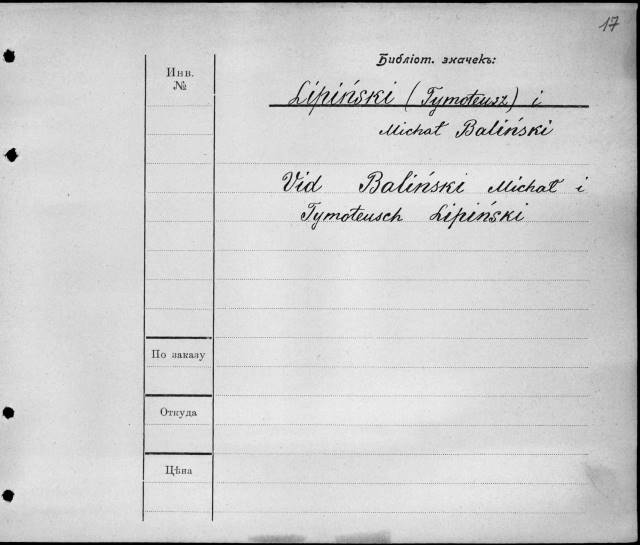 17
Библіот. значекъ:
Инв.
№
Lipiński (Tymoteusz) i
Michał Baliński
Vid Baliński Michał i
Tymoteusch Lipiński
По заказу
Откуда
Цѣна